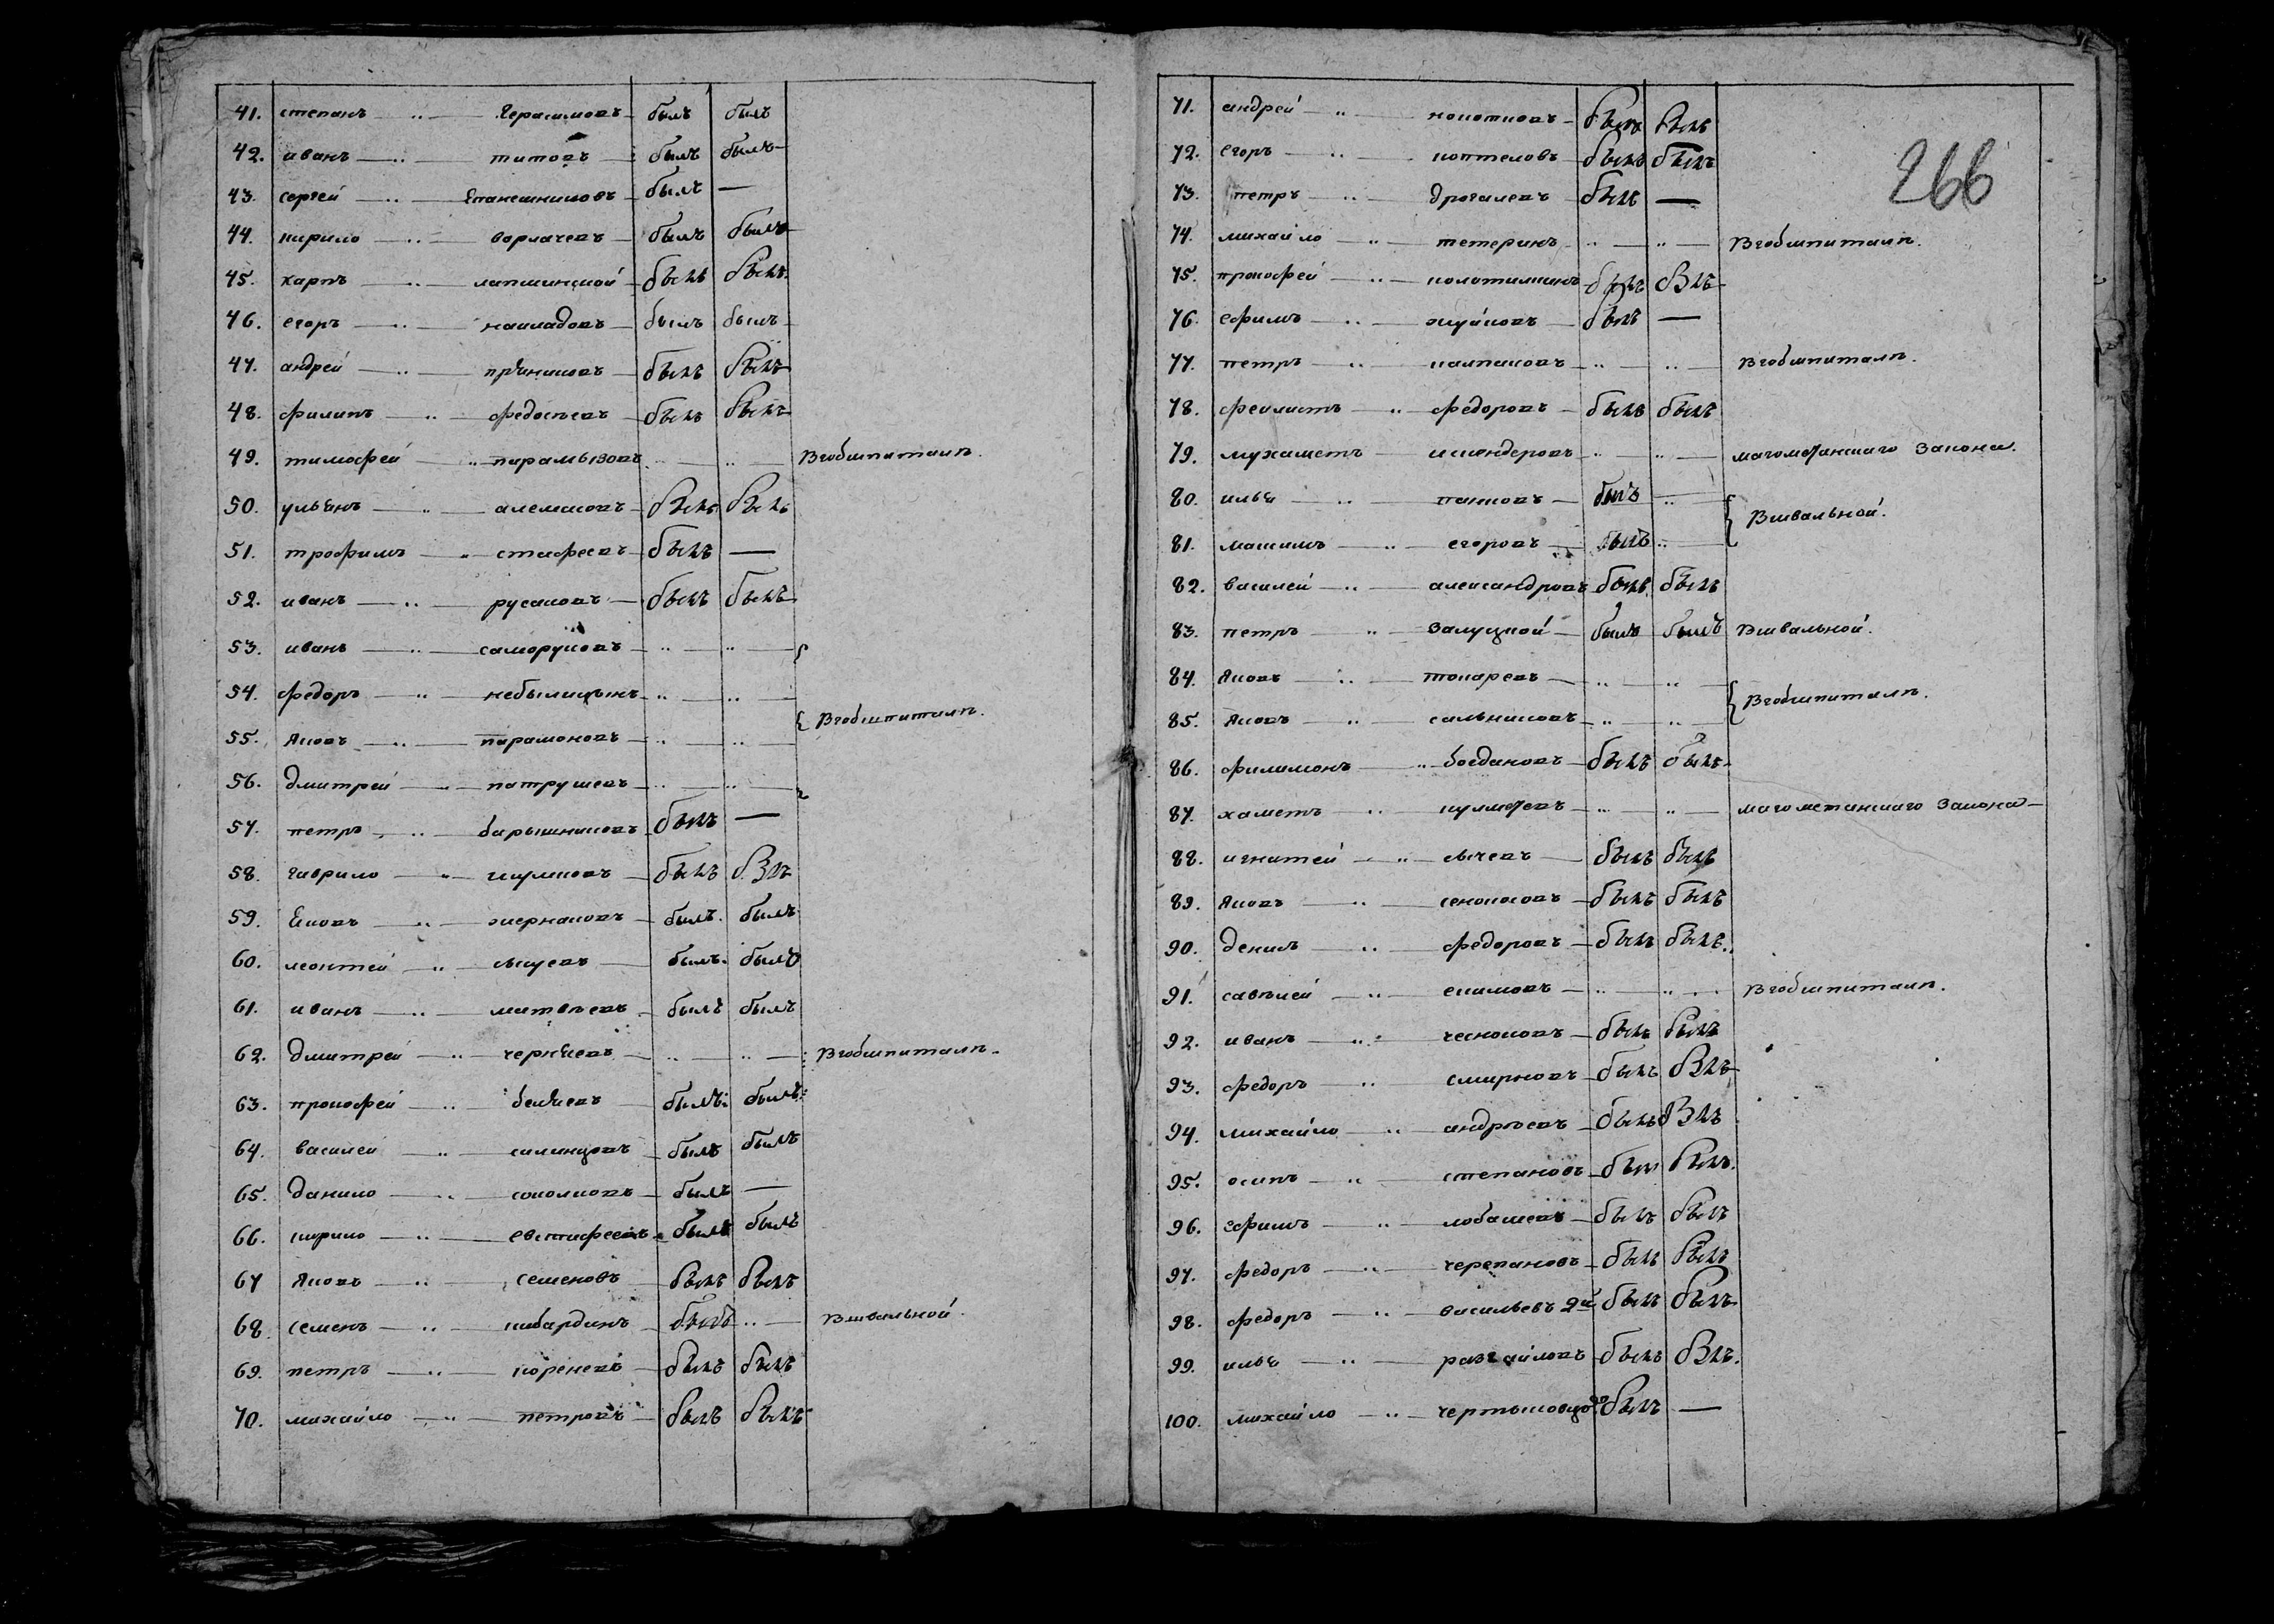 41. степанъ — „ — Герасимовъ — былъ былъ
42. иванъ — „ — титовъ — былъ былъ
43. сергей — „ — былъ —
44. кирило — „ — ворлачевъ — былъ былъ
45. карпъ — „ — лапшинской — былъ былъ
46. егоръ — „ — накладовъ — былъ былъ
47. андрей — „ — былъ былъ
48. филипъ — „ — федосѣевъ — былъ былъ
49. тимофей — „ — „ — „ — Вгобшпиталѣ.
50. ульянъ — „ — былъ былъ
51. трофимъ — „ — стафеевъ — былъ —
52. иванъ — „ — русаковъ — былъ былъ
53. иванъ — „ — саморуковъ — „ — „ —
54. федоръ — „ — небылицынъ — „ — „
Вгобшпиталѣ.
55. Яковъ — „ — парамоновъ — „ — „ —
56. дмитрей — „ — патрушевъ — „ — „ —
57. петръ — „ — барышниковъ — былъ —
58. гаврило — „ — былъ былъ
59. Яковъ — „ — жернаковъ — былъ. былъ
60. леонтей — „ — былъ. былъ
61. иванъ — „ — матвѣевъ — былъ былъ
62. дмитрей — „ — черняевъ — „ — „ — Вгобшпиталѣ.
63. прокофей — „ — беляевъ — былъ: былъ:
64. василей — „ — былъ былъ
65. данило — „ — соколковъ — былъ —
66. кирило — „ — евстафеевъ — былъ былъ
67 Яковъ — „ — семеновъ — былъ былъ
68. семенъ — „ — шабардинъ — былъ „ — Вшвальной.
69. петръ — „ — кореневъ — былъ былъ
70. михайло — „ — петровъ — былъ былъ
266
71. андрей — „ — былъ былъ
72. егоръ — „ — коптеловъ — былъ былъ
73. петръ — „ — дрогалевъ — былъ —
74. михайло — „ — тетеринъ — „ — „ — Вгобшпиталѣ.
75. прокофей — „ — былъ былъ
76. ефимъ — „ — жуйковъ — былъ —
77. петръ — „ — калпаковъ — „ — „ — Вгобшпиталѣ.
78. феклистъ — „ — федоровъ — былъ былъ
79. мухаметъ — искендеровъ — „ — „ — магометанскаго Закона.
80. илья — „ — панковъ — былъ „ —
Вшвальной.
81. макимъ — „ — егоровъ — былъ „ —
82. василей — „ — александровъ былъ былъ
83. петръ — „ — Залуцкой — былъ былъ Вшвальной.
84. Яковъ — „ — токаревъ — „ — „ —
Вгобшпиталѣ.
85. Яковъ — „ — сальниковъ — „ — „ —
86. филимонъ — „ — богдановъ — былъ былъ
87. хаметъ — „ — „ — „ — магометанскаго Закона —
88. игнатей — „ — сычевъ — былъ былъ
89. Яковъ — „ — сенокосовъ — былъ былъ
90. денилъ — „ — федоровъ — былъ былъ.
91. савѣлей — „ — екимовъ — „ — „ — Вгобшпиталѣ.
92. иванъ — „ — чесноковъ — былъ былъ
93. федоръ — „ — смирновъ — былъ былъ
94. михайло — „ — андрѣевъ — былъ былъ
95. осипъ — „ — степановъ — былъ былъ.
96. Ефимъ — „ — лобашевъ — былъ былъ
97. федоръ — „ — черепановъ — былъ былъ
98. федоръ — „ — васильевъ 2й былъ былъ
99. илья — „ — разгайловъ былъ былъ.
100. михайло — „ — былъ —